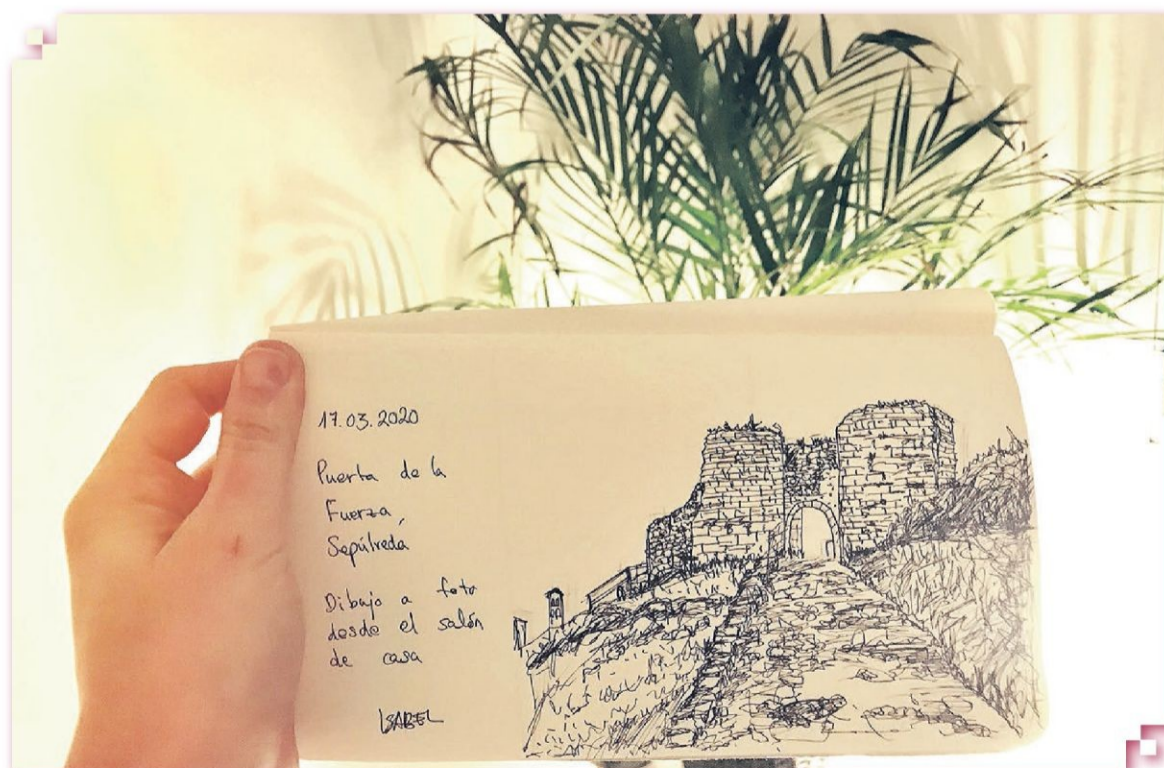 17.03.2020
Puerta de la
Fuerza,
Sepúlveda
Dibujo a foto
desde el salón
de casa
ISABEL